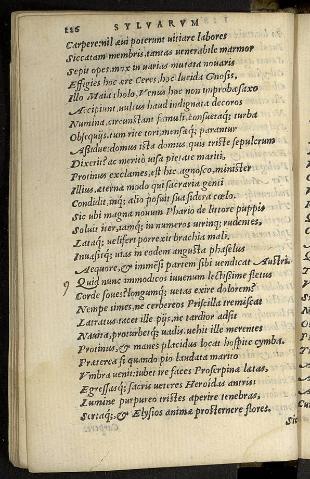 226 SYLVARVM
Carpere: nil æui poterunt uitiare labores
Siccatam membris, tantas uenerabile marmor
Sepit opes. mox in uarias mutata nouaris
Effigies: hoc ære Ceres, hoc lucida Gnosis,
Illo Maia tholo, Venus hoc non improba saxo
Accipiunt uultus haud indignata decoros
Numina, circunstant famuli, consuetaq; turba
Obsequijs, tum rite tori, mensæq; parantur
Assiduæ: domus ista domus. quis triste sepulcrum
Dixerit? ac merito uisa pietate mariti,
Protinus exclames, est hic, agnosco, minister
Illius, æterna modo qui sacraria geni
Condidit, inq; alio posuit sua sidera cœlo.
Sic ubi magna nouum Phario de littore puppis
Soluit iter, iamq; in numeros utrinq; rudentes,
Lataq; ueliferi porrexit brachia mali,
Inuasitq; uias in eodem angusta phaselus
Aequore, & immēsi partem sibi uendicat Austri.
9 Quid nunc immodicos iuuenum lectissime fletus
Corde foues? longumq; uetas exire dolorem?
Nempe times, ne cerbereos Priscilla tremiscat
Latratus. tacet ille pijs, ne tardior adsit
Nauita, proturbetq; uadis. uehit ille merentes
Protinus, & manes placidus locat hospite cymba.
Præterea si quando pio laudata marito
Vmbra uenit: iubet ire faces Proserpina lætas,
Egressasq; sacris ueteres Heroidas antris:
Lumine purpureo tristes aperire tenebras,
Sertaq;, & Elysios animæ prosternere flores.
Sic
Carpere